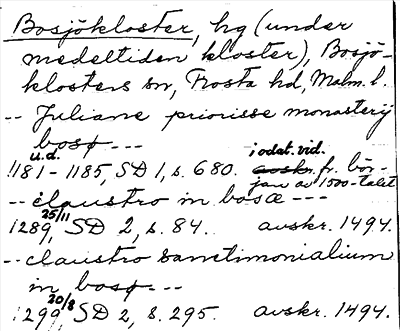 Bosjökloster, hg (under
medeltiden kloster), Bosjö-
klosters sn, Frosta hd, Malm. l.
-- Juliane priorisse monasterij
bosø ---
u.d. i odat. vid.
1181-1185, SD 1, s. 680. avskr. fr. bör-
jan av 1500-talet
-- claustro in bosœ ---
25/11
1289, SD 2, s. 84. avskr. 1494.
-- claustro sanctimonialium
in bosø --
20/8
1299, SD 2, s. 295. avskr. 1494.